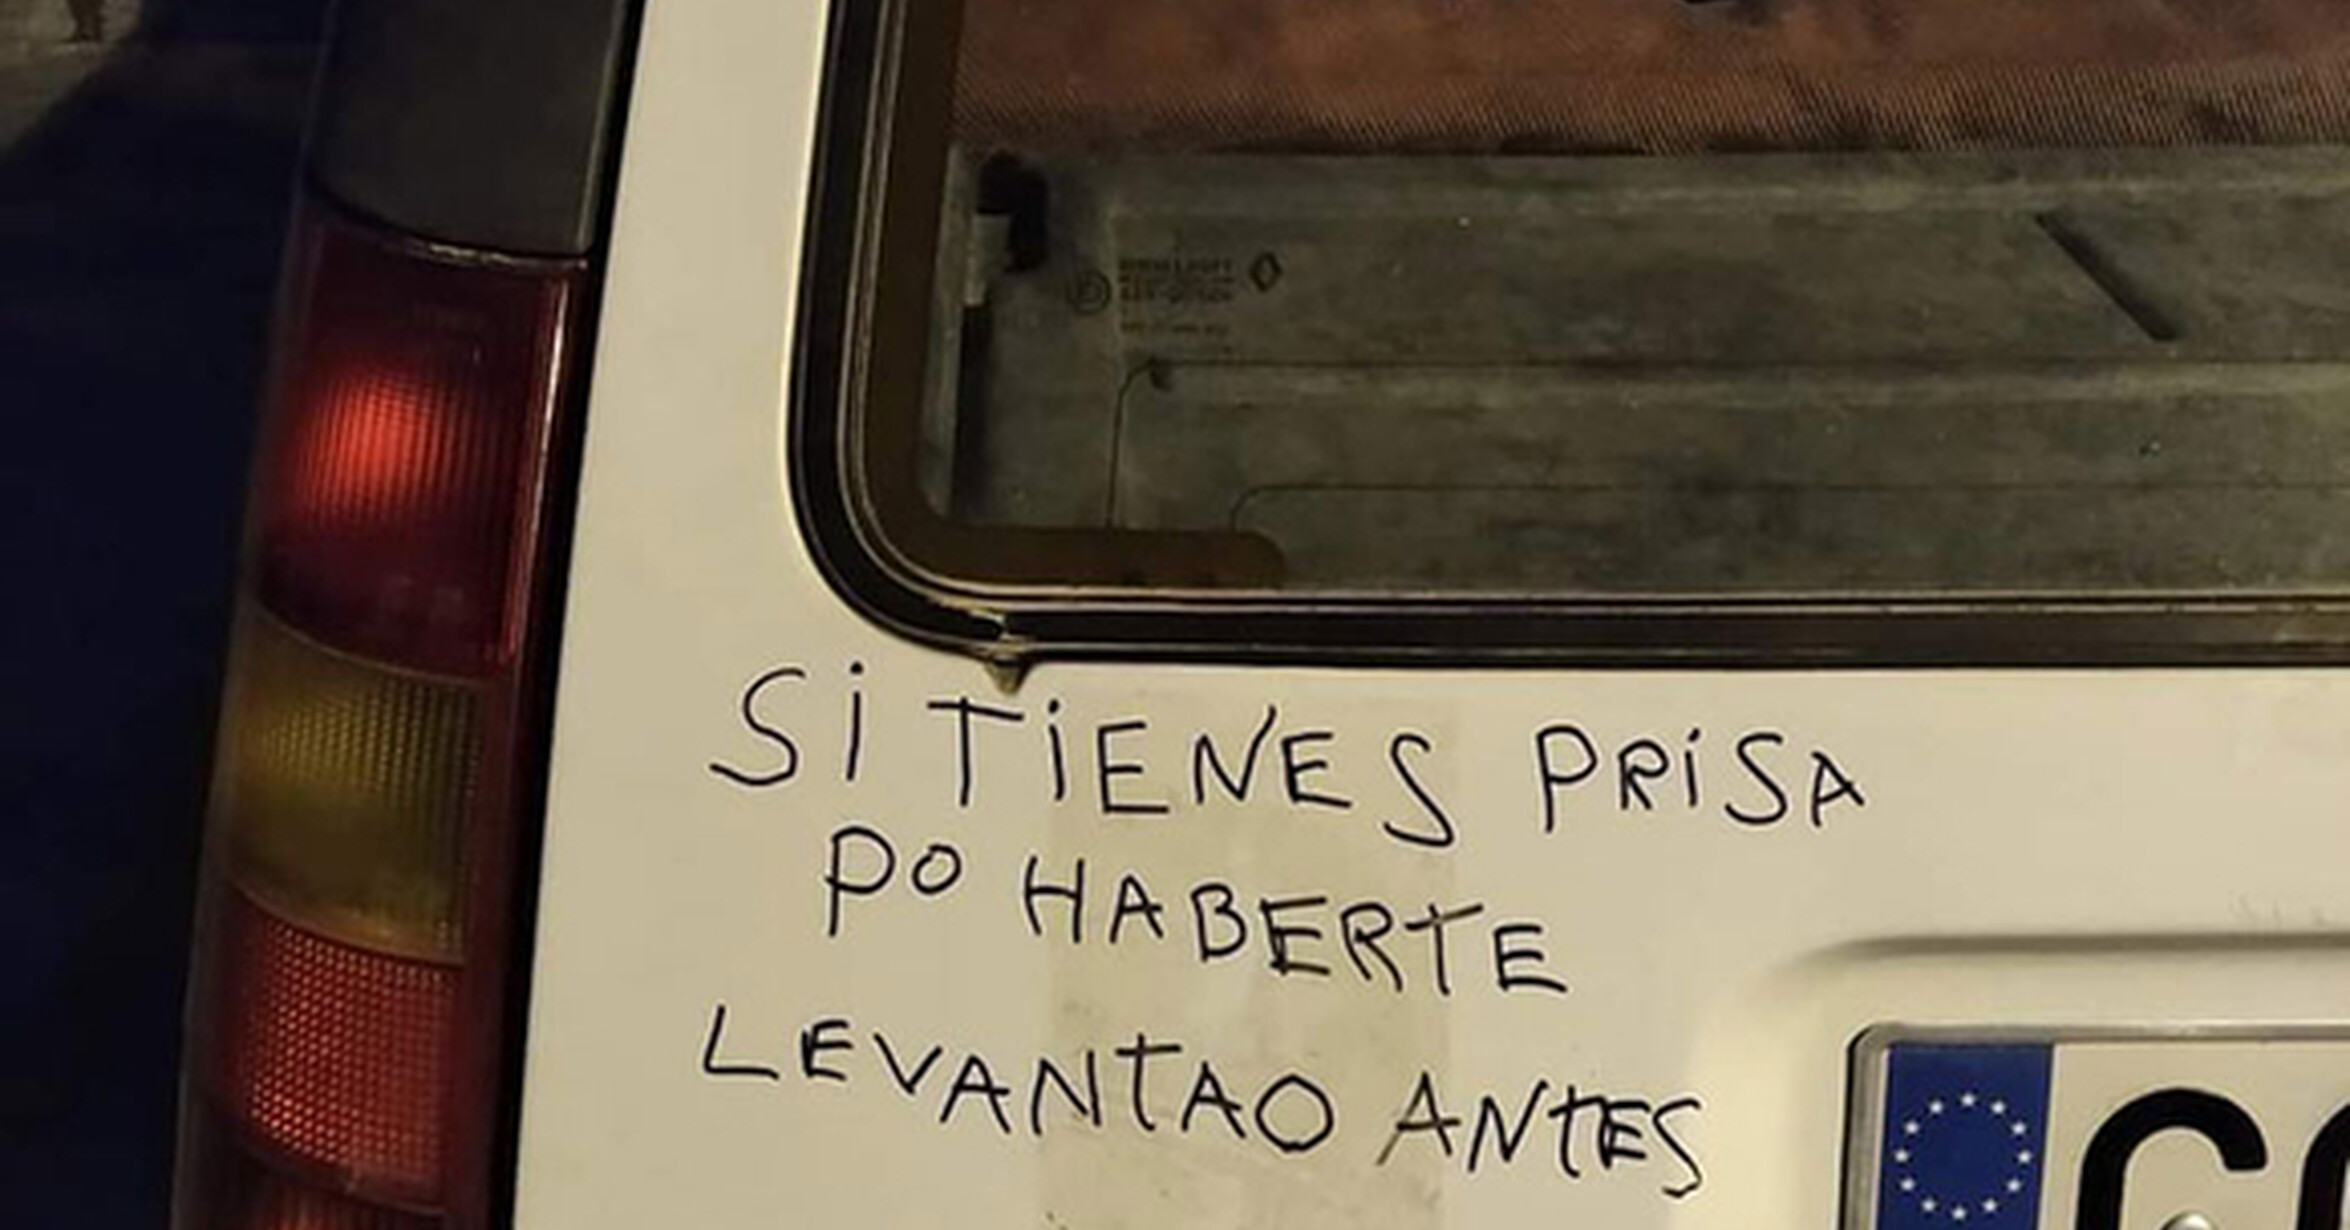 SI TIENES PRISA
PO HABERTE
LEVANTAO ANTES